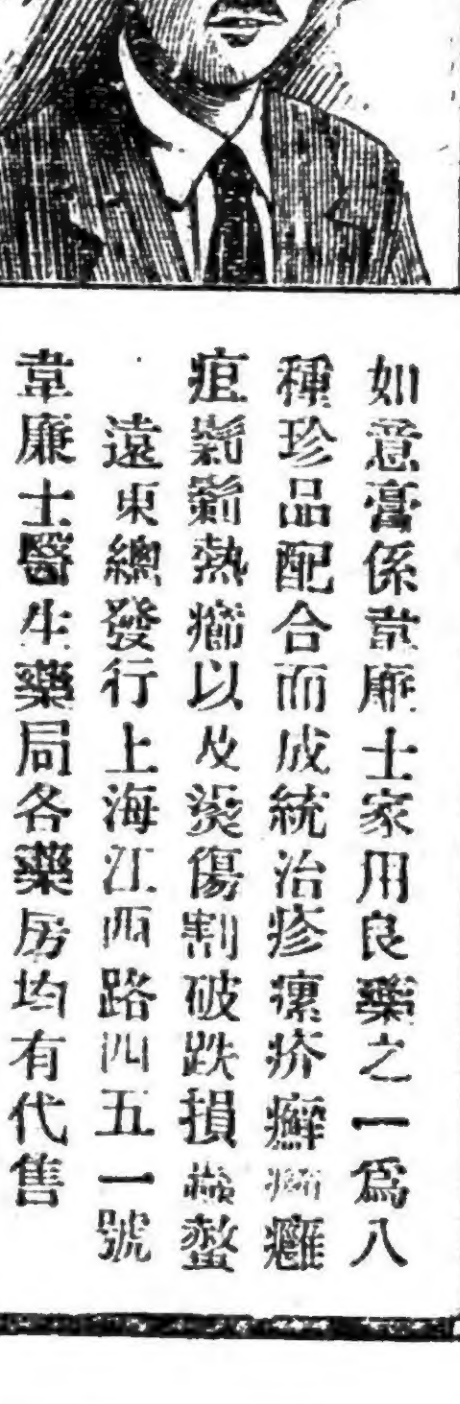 如意膏係韋廉士家用良藥之一爲八
種珍品配合而成統治疹瘰疥癬癰
疽熱癤以及燙傷割破跌損螫
遠東總發行上海江西路四五一號
韋廉士醫生藥局各藥房均有代售